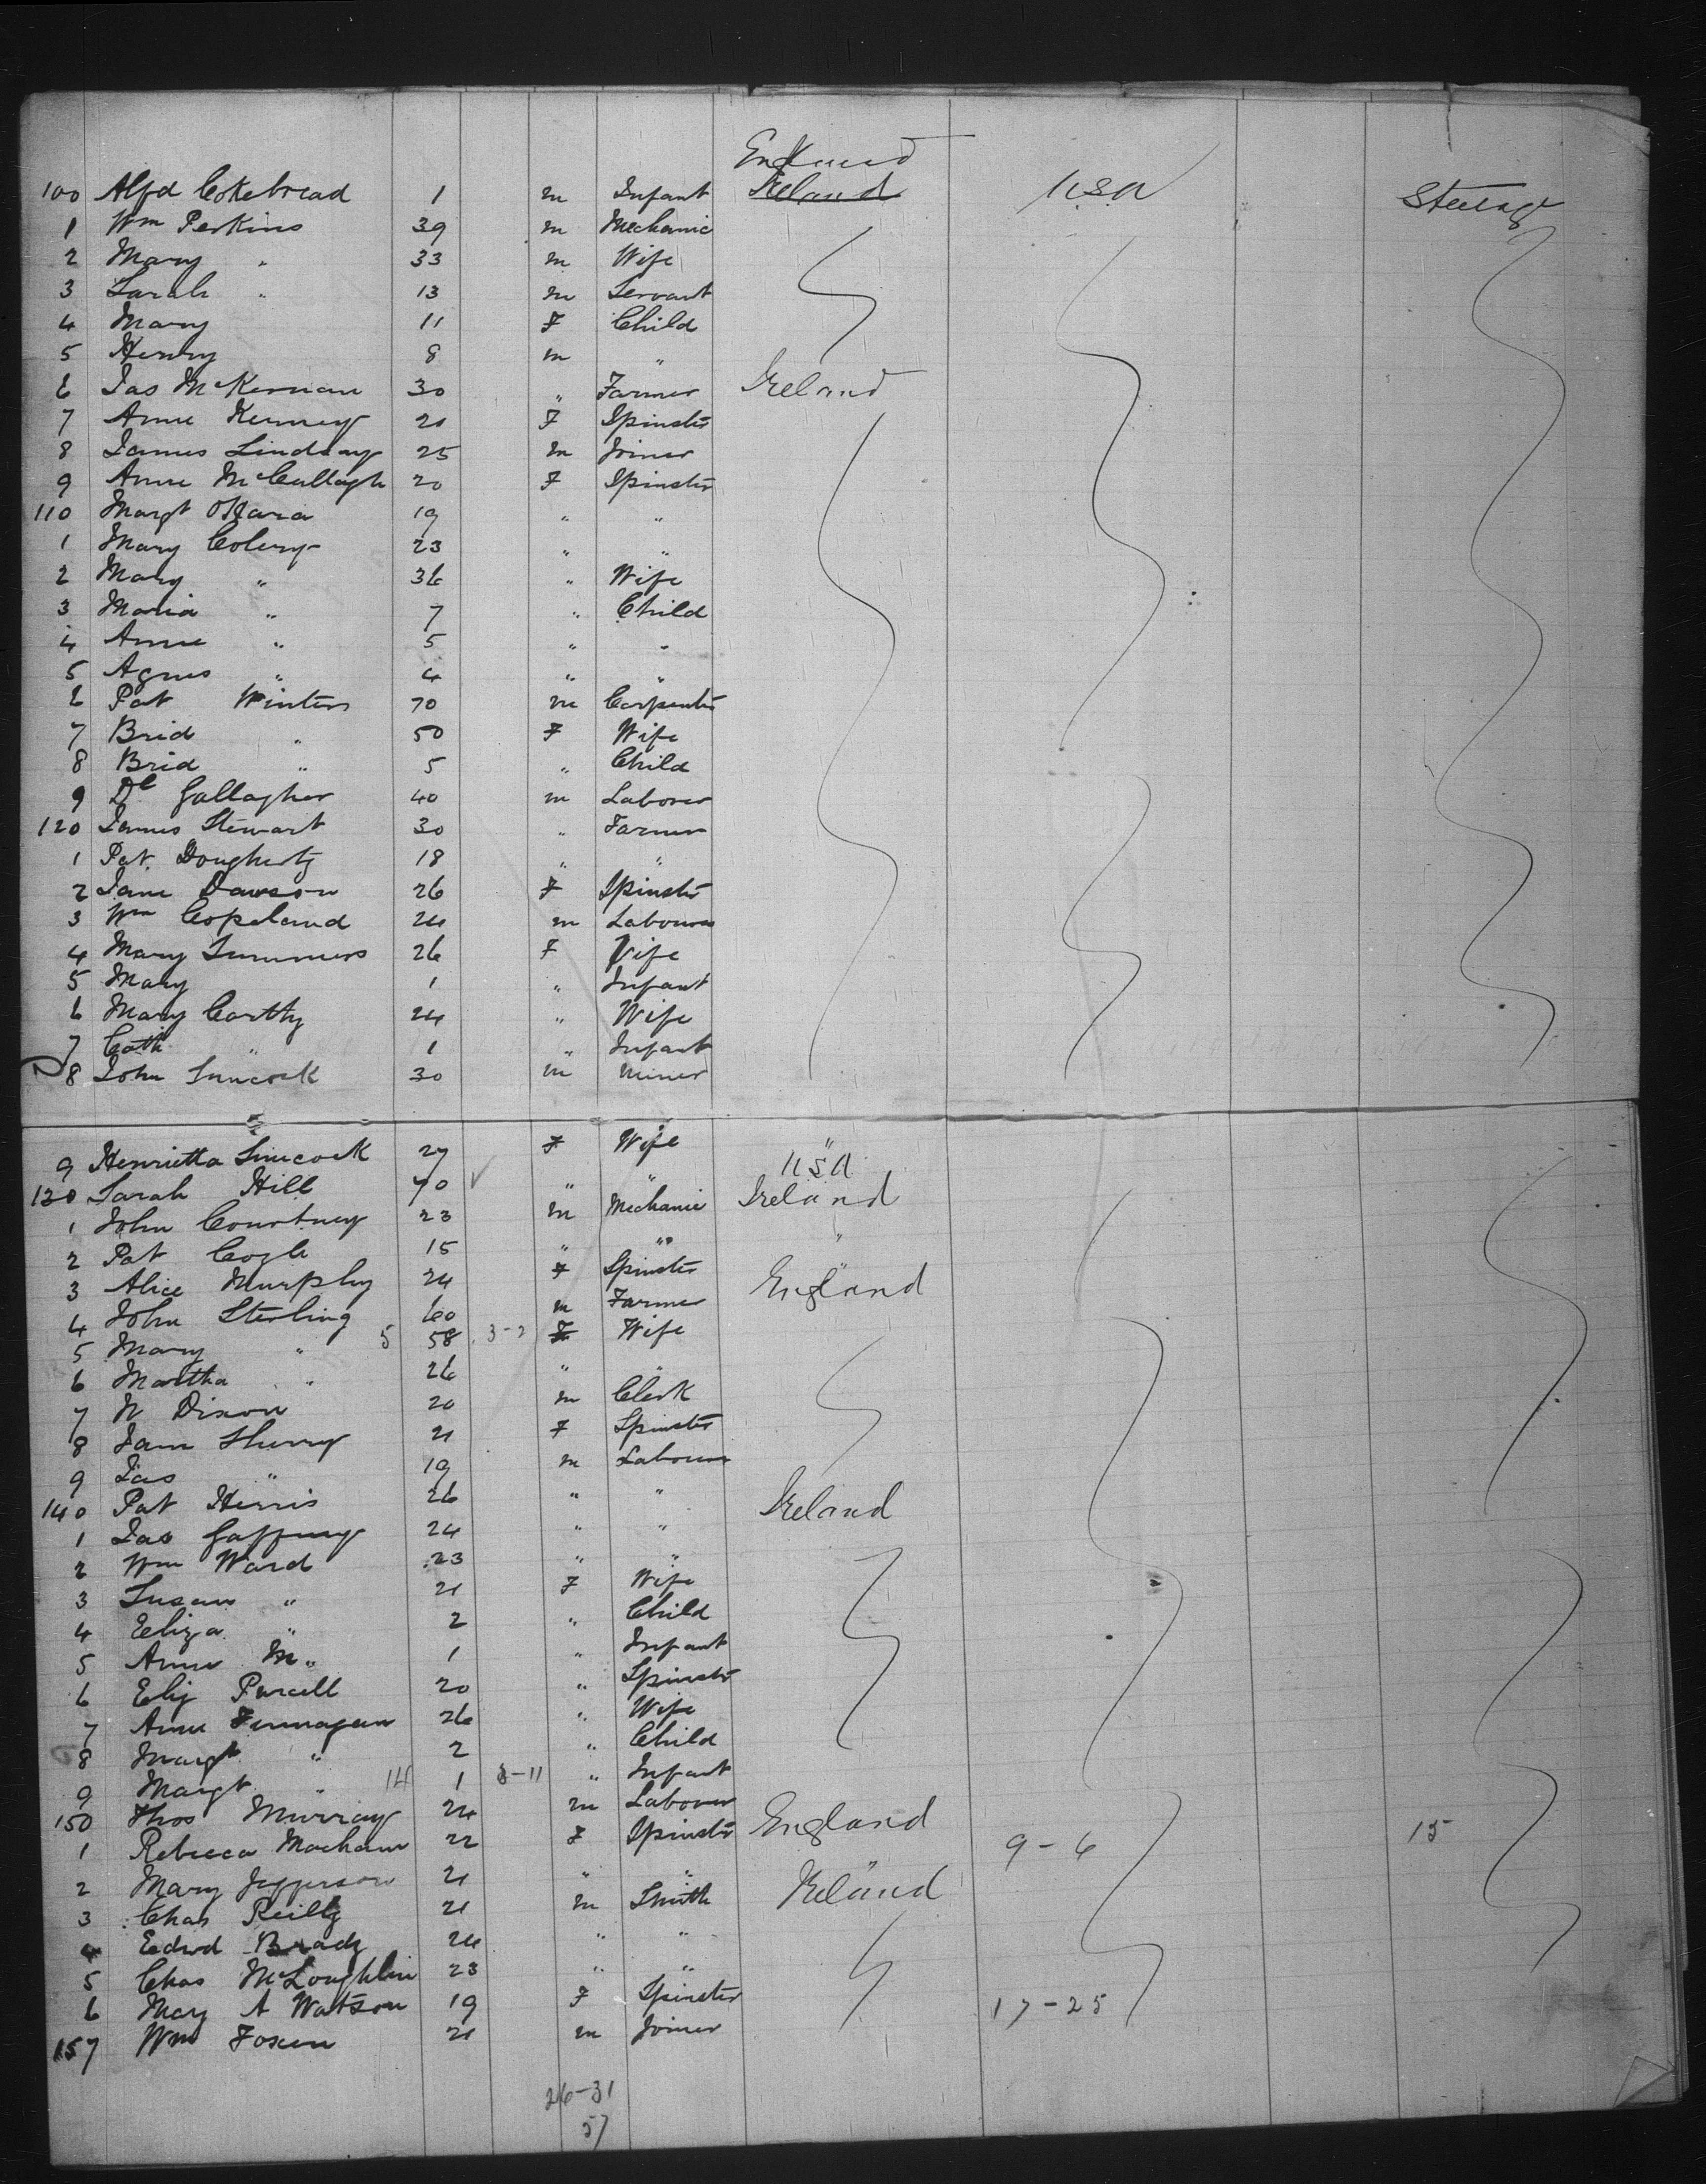 England
100 Alfd Cokebread 1 m Infant Ireland U.S.A Steerage
1 Wm Perkins 39 m Mechanic
2 Mary " 33 m Wife
3 Sarah " 13 m Servant
4 Mary 11 F Child
5 Henry 8 m "
6 Jas McKernan 30 " Farmer Ireland
7 Anne Kenney 21 F Spinster
8 James Lindsay 25 m Joiner
9 Anne McCullagh 20 F Spinster
110 Margt OHara 19 " "
1 Mary Colery 23 " "
2 Mary " 36 " Wife
3 Maria " 7 " Child
4 Anne " 5 " "
5 Agnes " 4 " "
6 Pat Winters 70 m Carpenter
7 Brid " 50 F Wife
8 Brid " 5 " Child
9 Dl Gallagher 40 m Laborer
120 James Stewart 30 " Farmer
1 Pat Dougherty 18 " "
2 Jane Dawson 26 F Spinster
3 Wm Copeland 24 m Labourer
4 Mary Summers 26 F Wife
5 Mary 1 " Infant
6 Mary Carthy 24 " Wife
7 Cath " 1 " Infant
8 John Simcock 30 m Miner
9 Henrietta Simcock 27 F Wife "
130 Sarah Hill 70 " " U.S.A
1 John Courtney 23 m Mechanic Ireland
2 Pat Cogle 15 " " "
3 Alice Murphy 24 F Spinster "
4 John Sterling 60 m Farmer England
5 Mary " 5 58 3-2 F Wife
6 Martha " 26 " "
7 N Dixon 20 m Clerk
8 Jane Shurry 21 F Spinster
9 Jas " 19 m Labourer
140 Pat Herris 26 " " Ireland
1 Jas Gaffney 24 " "
2 Wm Ward 23 " "
3 Susan " 21 F Wife
4 Eliza " 2 " Child
5 Anne M " 1 " Infant
6 Eliz Purcell 20 " Spinster
7 Anne Finnagan 26 " Wife
8 Margt " 2 " Child
9 Margt " 14 1 3-11 " Infant
150 Thos Murray 24 m Laborer
1 Rebecca Macham 22 F Spinster England 9-6 15
2 Mary Jefferson 21 " " "
3 Chas Reilly 21 m Smith Ireland
4 Edwd Brady 24 " "
5 Chas McLoughlin 23 " "
6 Mary A Watson 19 F Spinster
157 Wm Foxen 21 m Joiner 17-25
26-31
57